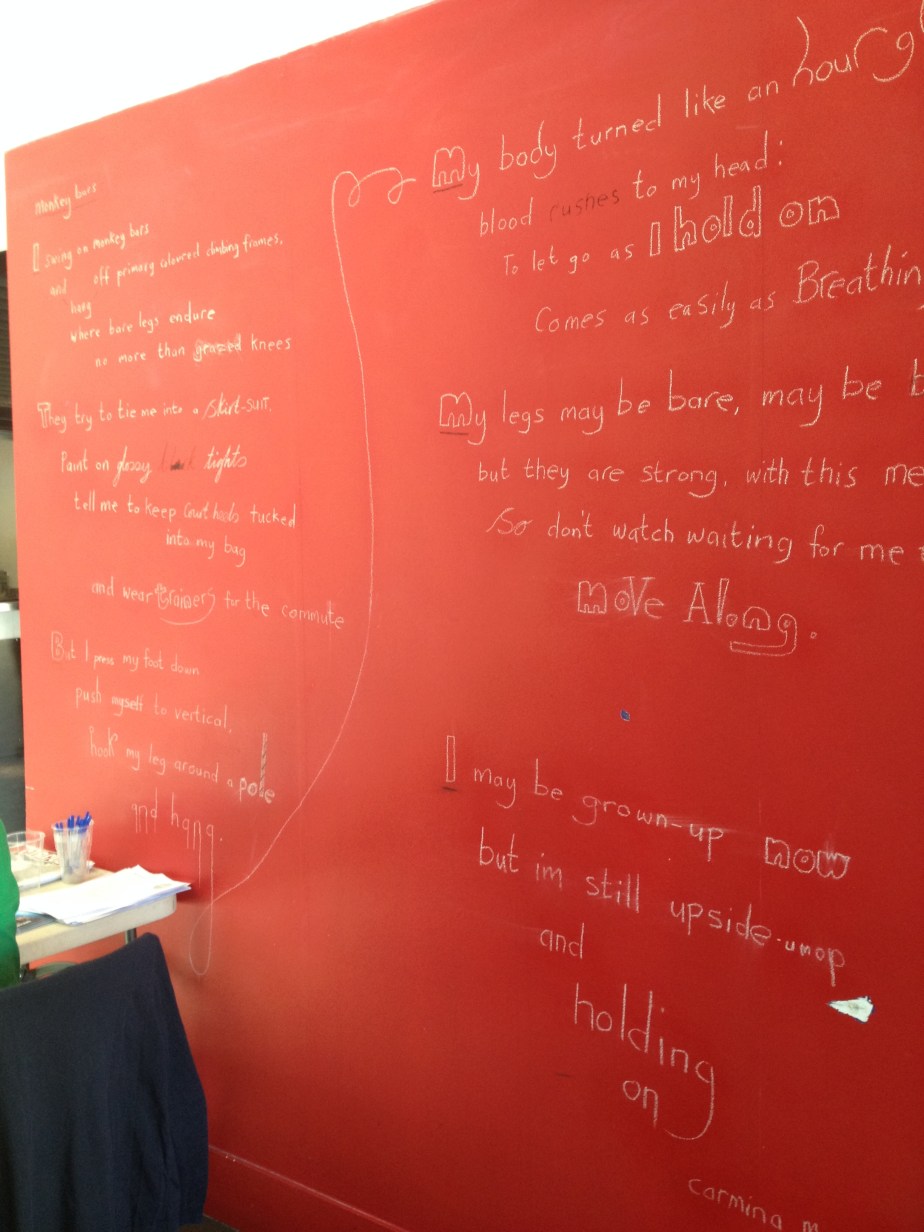 Monkey bars
I swing on monkey bars
and off primary coloured climbing frames,
hang
where bare legs endure
no more than grazed knees
They try to tie me into a skirt-suit.
Paint on glossy black tights
tell me to keep tucked
into my bag
and wear trainers for the commute
But I press my foot down
push myself to vertical,
hook my leg around a pole
and hang.
My body turned like an hourgl
blood rushes to my head:
To let go as I hold on
Comes as easily as Breathin
My legs may be bare, may be b
but they are strong, with this me
So don't watch waiting for me t
move Along.
I may be grown-up now
but im still upside-umop
and
holding
on
Carmina M